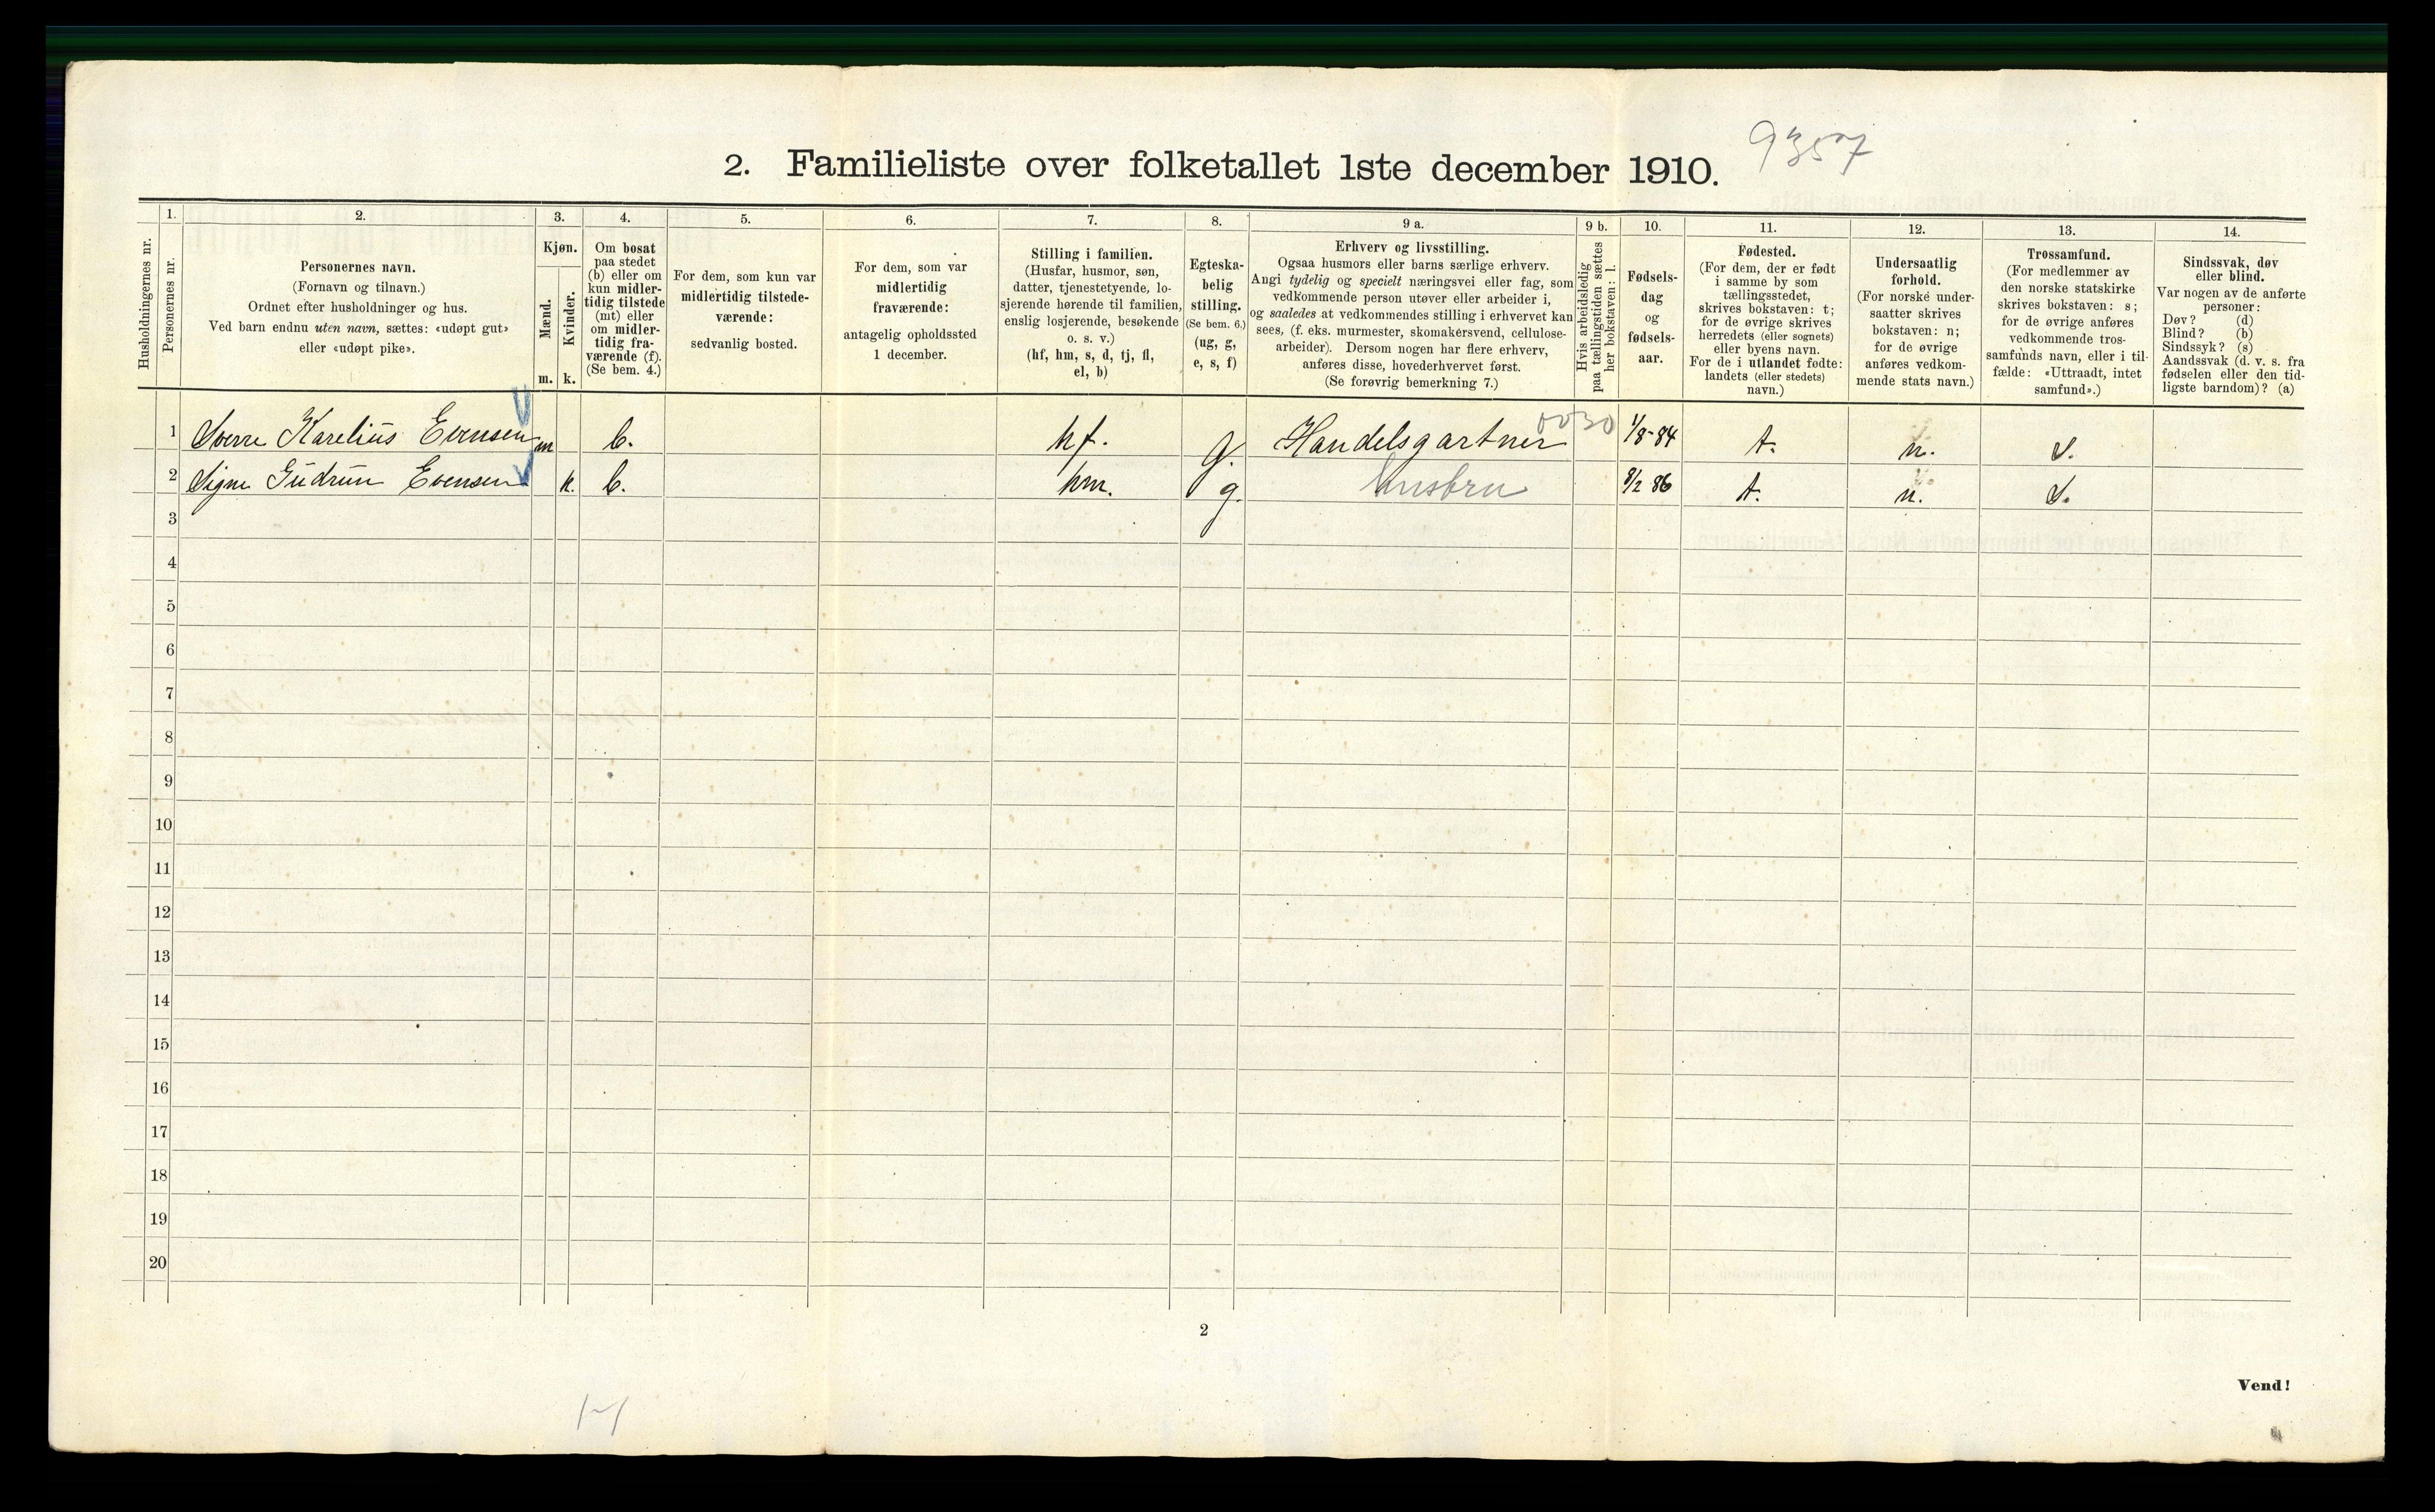 9357
2. Familieliste over folketallet 1ste december 1910.
Husholdningernes nr.
1.
Personernes nr.
2.
Personernes navn.
(Fornavn og tilnavn.)
Ordnet efter husholdninger og hus.
Ved barn endnu uten navn, sættes: «udøpt gut»
eller «udøpt pike».
3.
Kjøn.
Mænd.
m.
Kvinder.
k.
4.
Om bosat
paa stedet
(b) eller om
kun midler-
tidig tilstede
(mt) eller
om midler-
tidig fra-
værende (f).
(Se bem. 4.)
5.
For dem, som kun var
midlertidig tilstede-
værende:
sedvanlig bosted.
6.
For dem, som var
midlertidig
fraværende:
antagelig opholdssted
1 december.
7.
Stilling i familien.
(Husfar, husmor, søn,
datter, tjenestetyende, lo-
sjerende hørende til familien,
enslig losjerende, besøkende
o. s. v.)
(hf, hm, s, d, tj, fl,
el, b)
8.
Egteska-
belig
stilling.
(Se bem. 6.)
(ug, g,
e, s, f)
9 a.
Erhverv og livsstilling.
Ogsaa husmors eller barns særlige erhverv.
Angi tydelig og specielt næringsvei eller fag, som
vedkommende person utøver eller arbeider i,
og saaledes at vedkommendes stilling i erhvervet kan
sees, (f. eks. murmester, skomakersvend, cellulose-
arbeider). Dersom nogen har flere erhverv,
anføres disse, hovederhvervet først.
(Se forøvrig bemerkning 7.)
9 b.
Hvis arbeidsledig
paa tællingstiden sættes
her bokstaven: l.
10.
Fødsels-
dag
og
fødsels-
aar.
11.
Fødested.
(For dem, der er født
i samme by som
tællingsstedet,
skrives bokstaven: t;
for de øvrige skrives
herredets (eller sognets)
eller byens navn.
For de i utlandet fødte:
landets (eller stedets)
navn.)
12.
Undersaatlig
forhold.
(For norske under-
saatter skrives
bokstaven: n;
for de øvrige
anføres vedkom-
mende stats navn.)
13.
Trossamfund.
(For medlemmer av
den norske statskirke
skrives bokstaven: s;
for de øvrige anføres
vedkommende tros-
samfunds navn, eller i til-
fælde: «Uttraadt, intet
samfund».)
14.
Sindssvak, døv
eller blind.
Var nogen av de anførte
personer:
Døv? (d)
Blind? (b)
Sindssyk? (s)
Aandssvak (d. v. s. fra
fødselen eller den tid-
ligste barndom)? (a)
1 Sverre Karelius Evensen m b. hf. g. Handelsgartner 0030 1/8-84 t. n. s.
2 Signe Gudrun Evensen k. b. hm. g. husfru 8/2 86 t. n. s.
3
4
5
6
7
8
9
10
11
12
13
14
15
16
17
18
19
20
2
Vend!
1-1